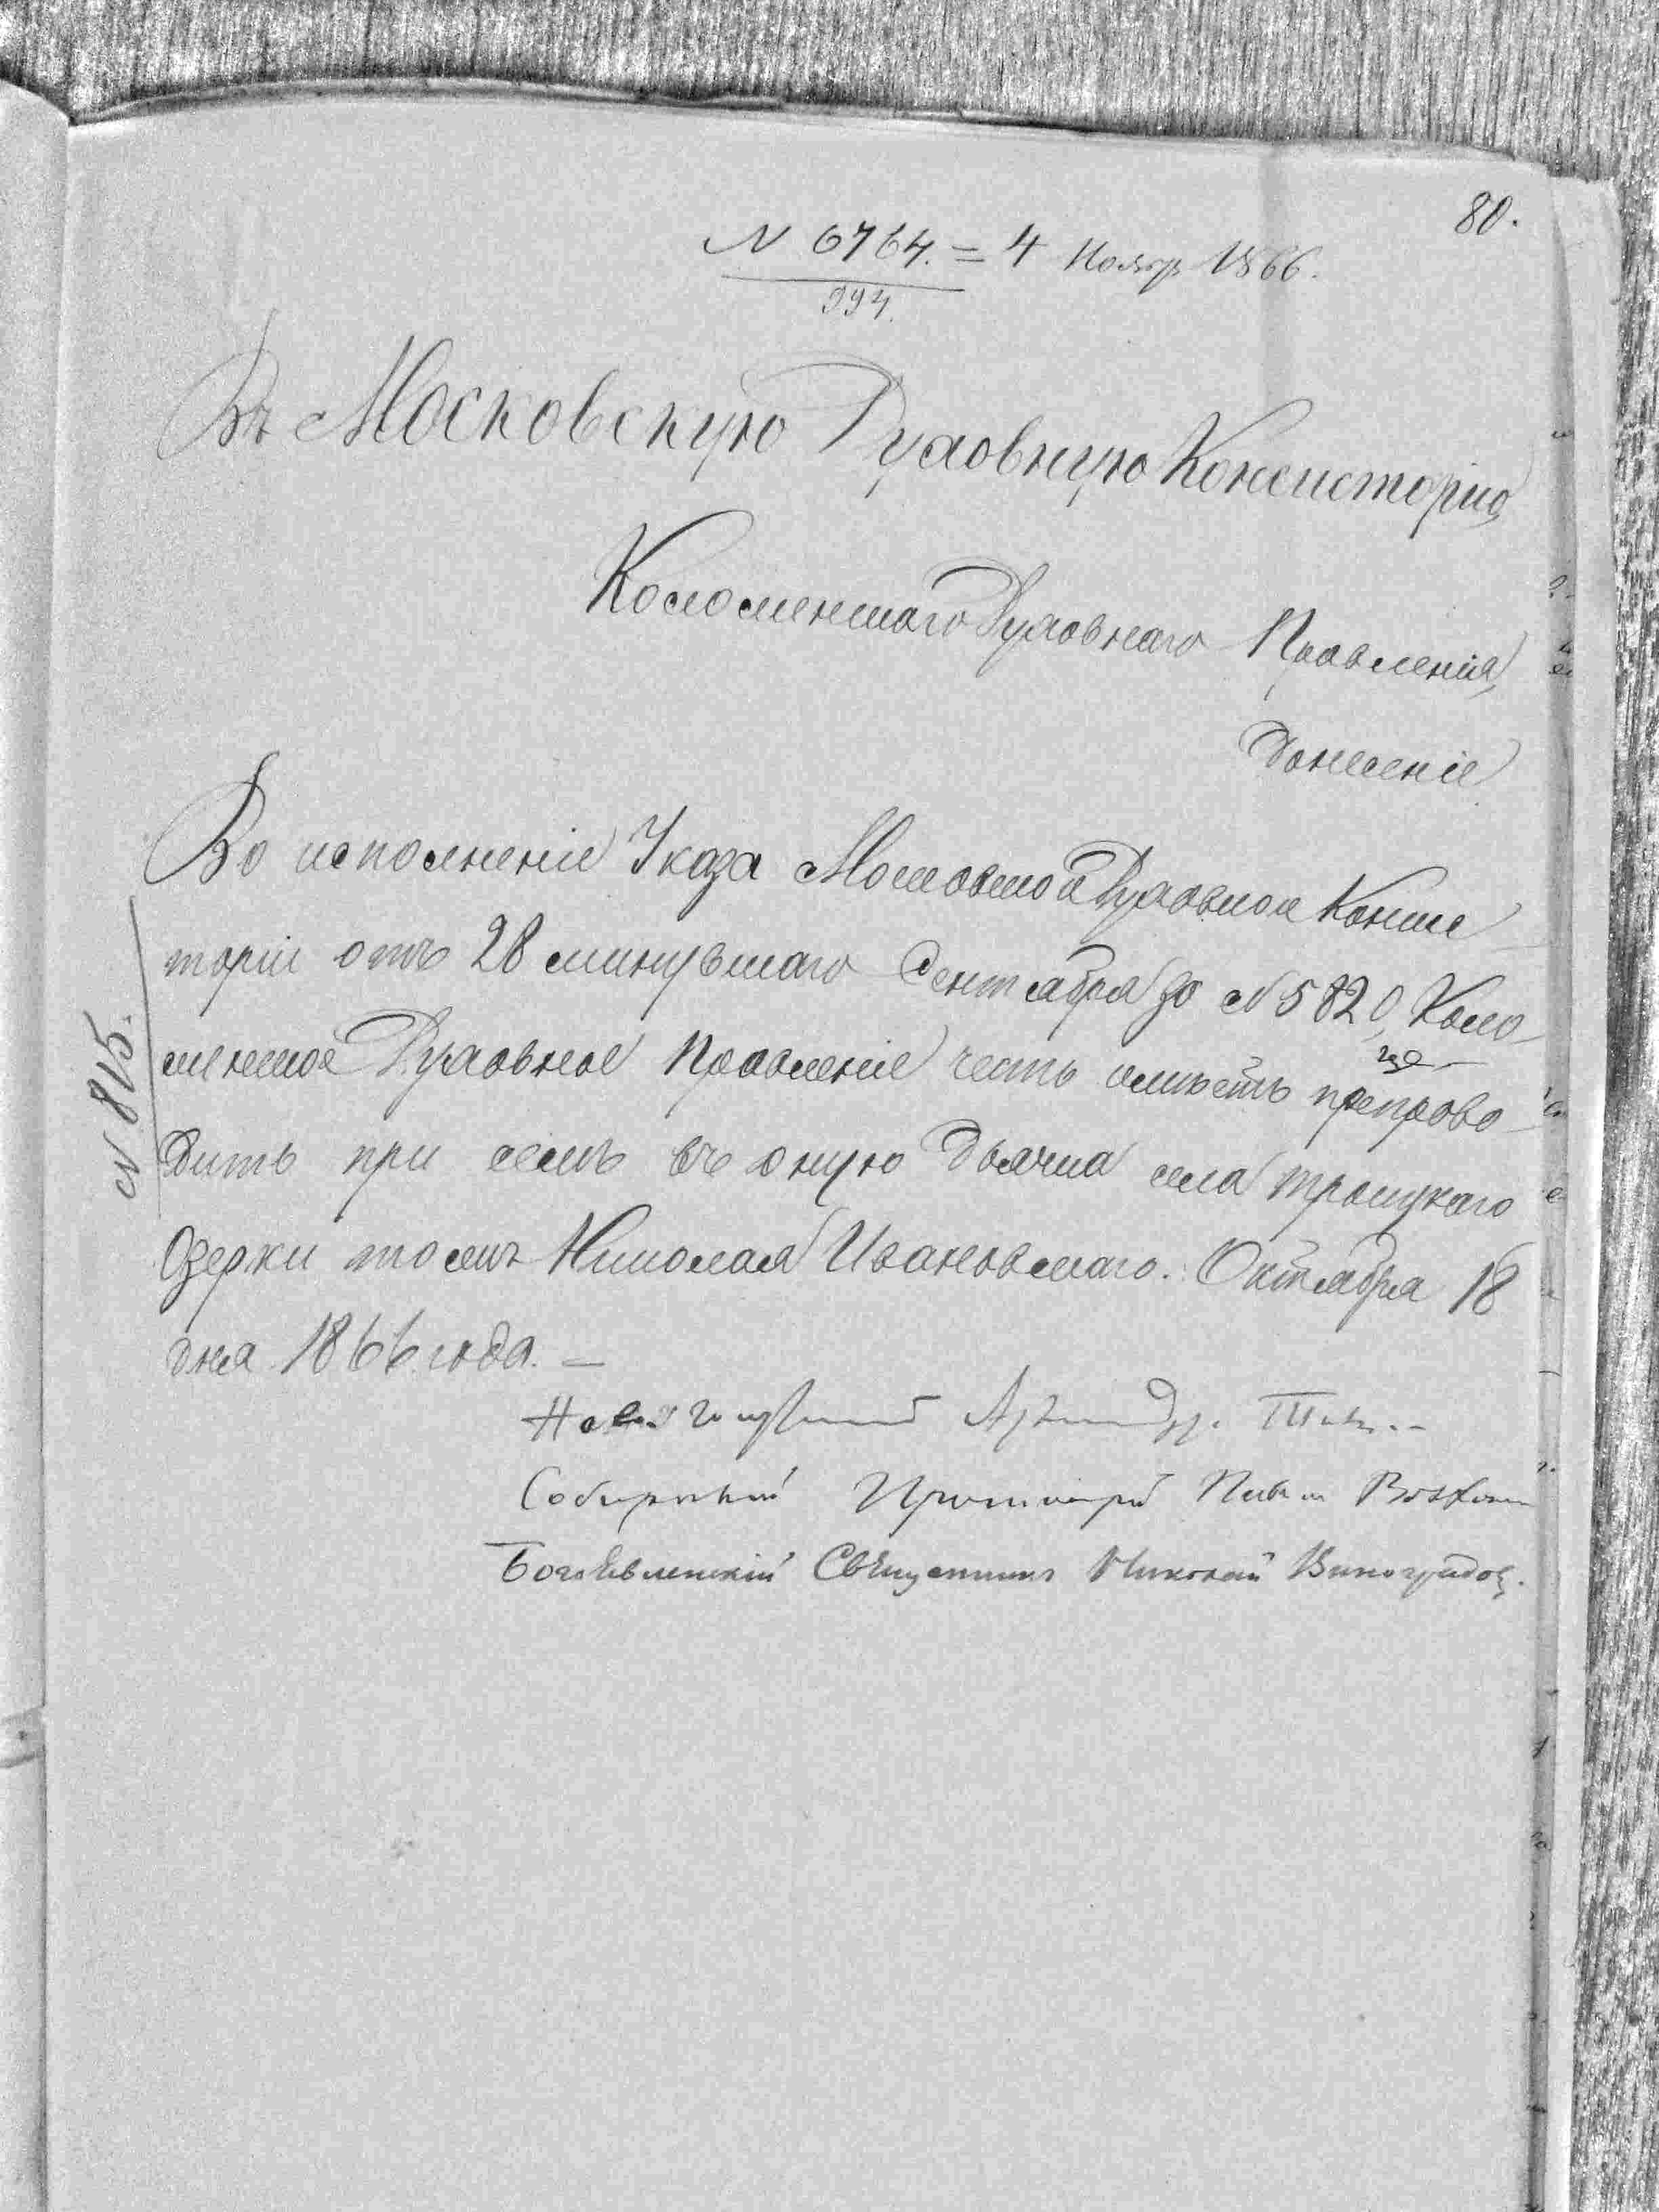 80.
N 6764. = 4 Ноябр 1866.
994.
Въ Московскую Духовную Консисторію
Коломенскаго Духовнаго Правленія,
Донесеніе
Во исполненіе Указа Московской Духовной Консис
торіи отъ 28 минувшаго Сентября за N 5820, Коло-
менское Духовное Правленіе честь имѣетъ препрово-
дить при семъ въ оную дьячка села Троицкаго
Озерки тожъ Николая Ивановскаго. Октября 18
дня 1866 года. —
N 815.
Соборный Протоіерей
Богоявленскій Священникъ Николай Виноградовъ.